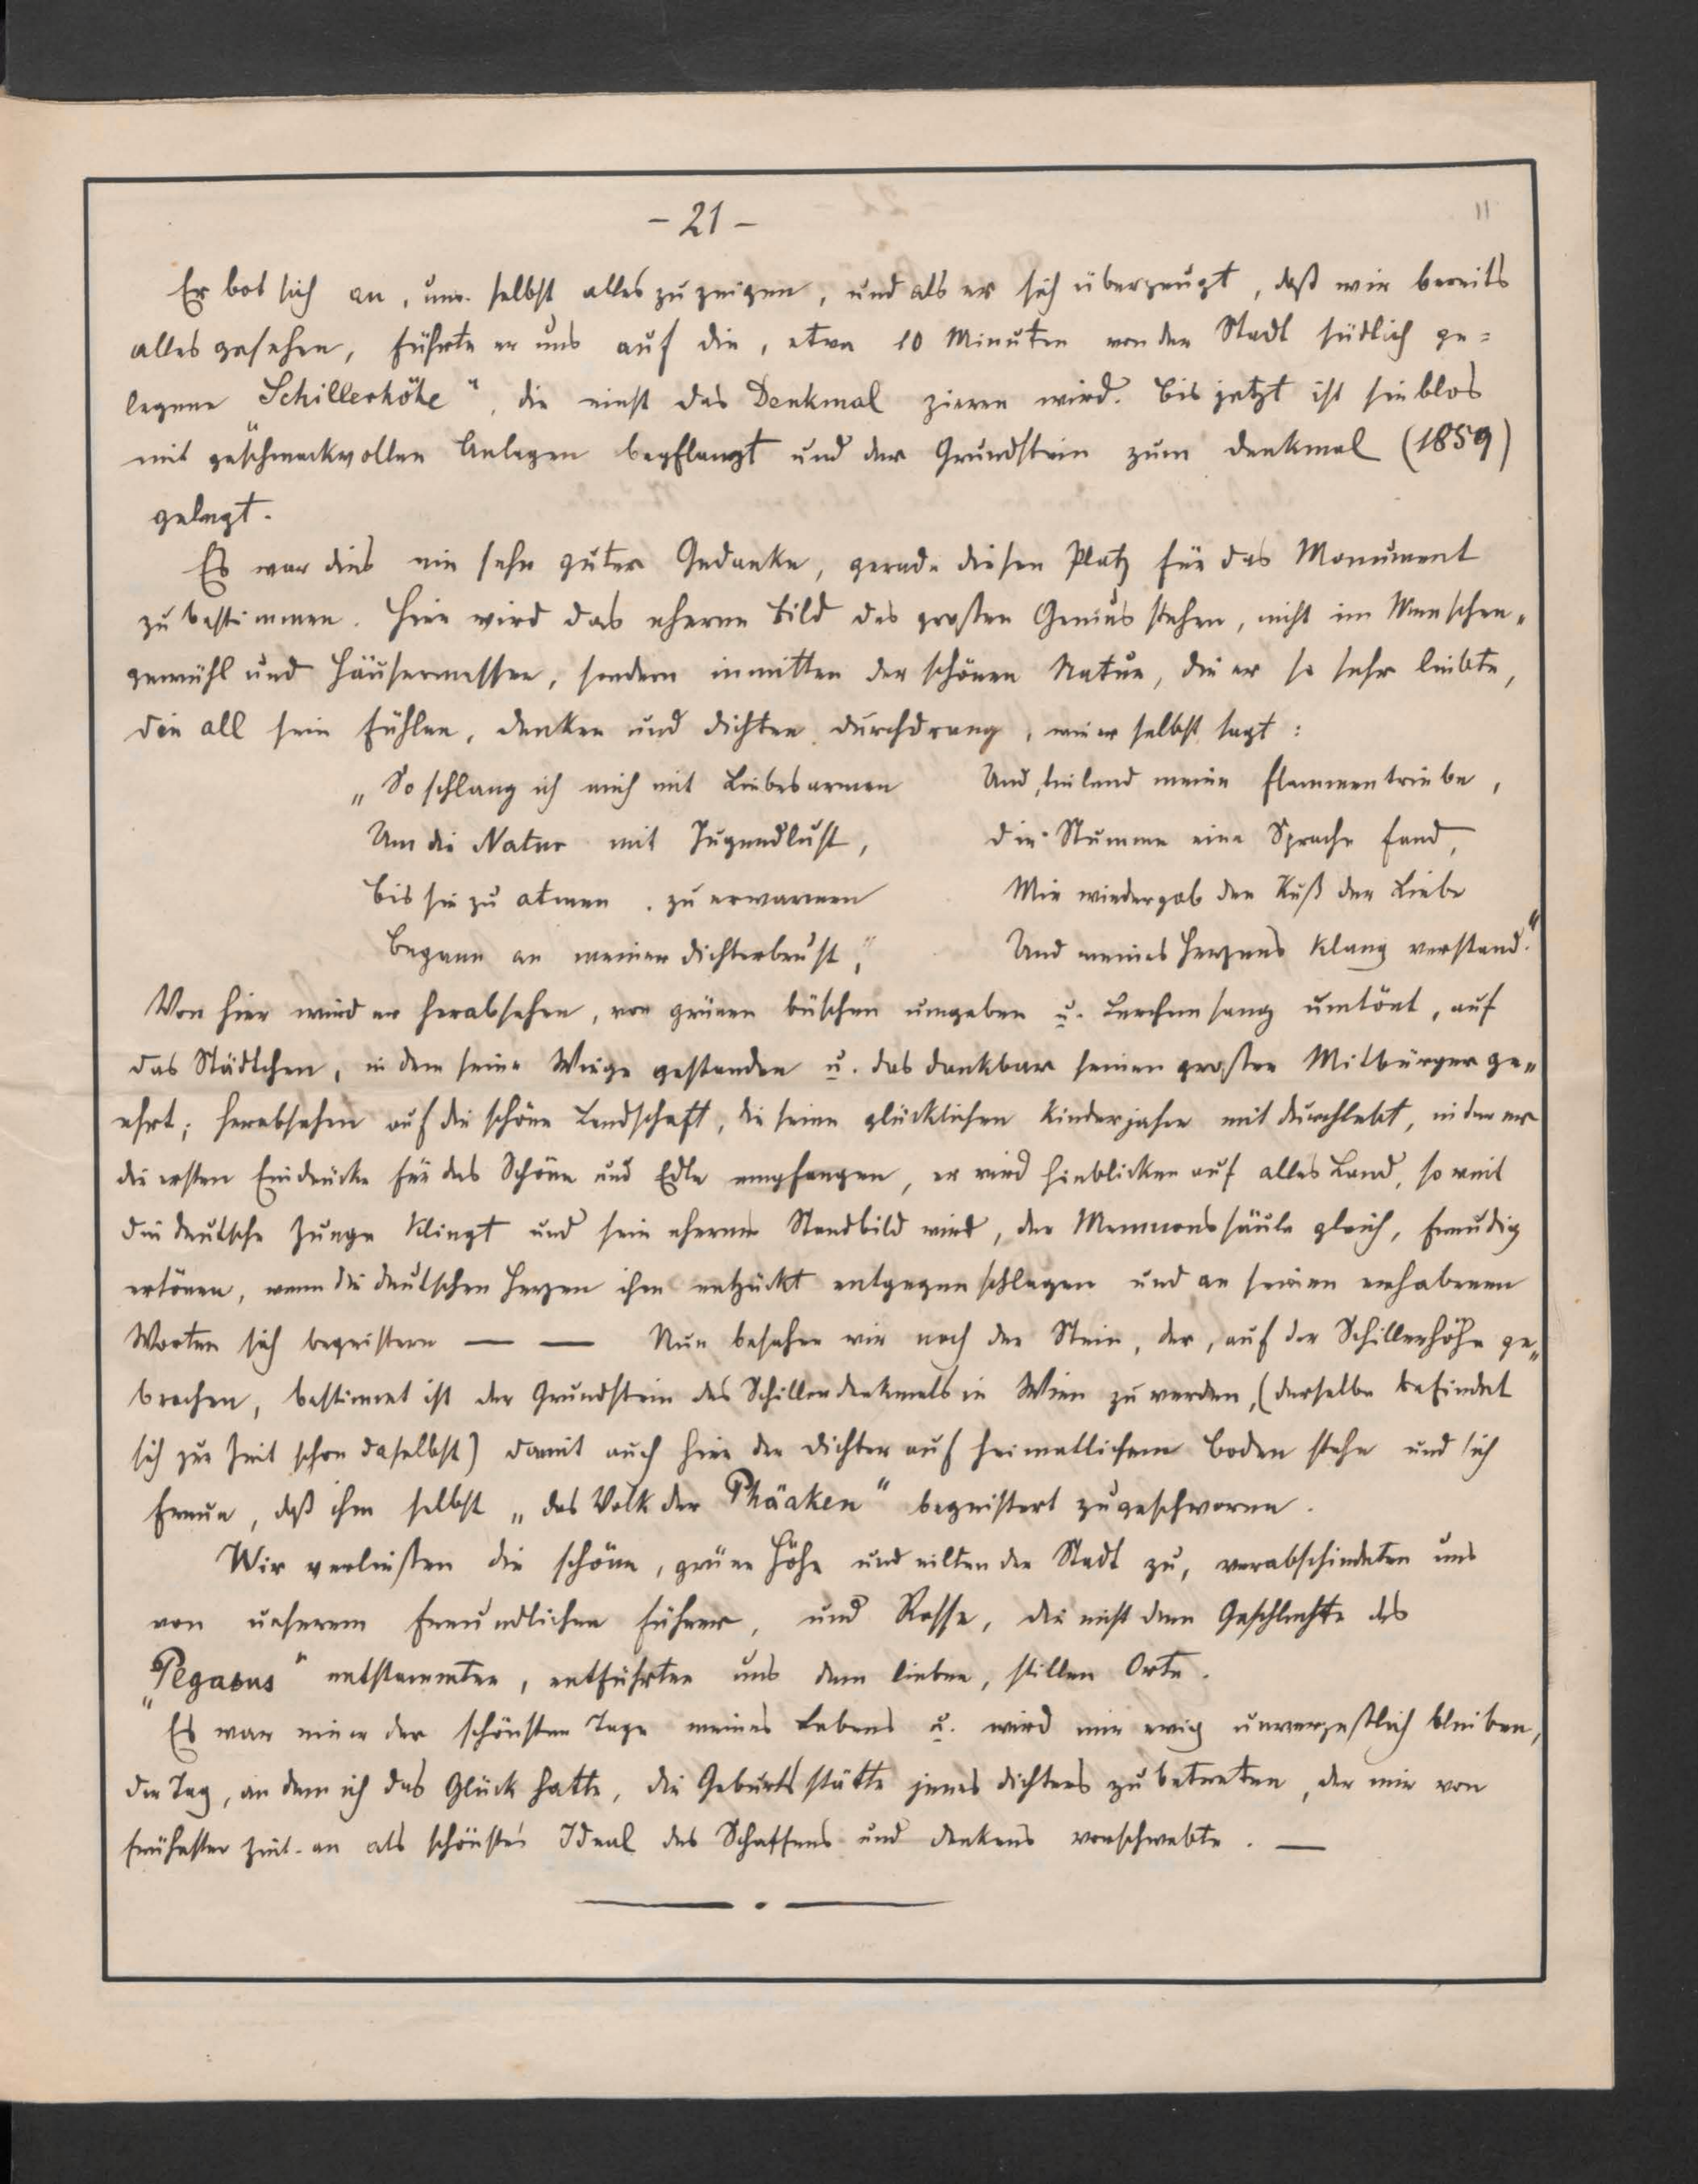 - 21 -
11
Er bot sich an, uns selbst alles zu zeigen, und als er sich überzeugt, daß wir bereits
alles gesehen, führte er uns auf die, etwa 10 Minuten von der Stadt südlich ge=
legene „Schillerhöhe", die einst das Denkmal zieren wird. Bis jetzt ist sie blos
mit geschmackvollen Anlagen bepflanzt und der Grundstein zum Denkmal (1859)
gelegt.
Es war dies ein sehr guter Gedanke, gerade diesen Platz für das Monument
zu bestimmen. Hier wird das eherne Bild des großen Genius stehen, nicht im Menschen=
gewühl und Häusermassen, sondern inmitten der schönen Natur, die er so sehr liebte,
die all sein Fühlen, Denken und Dichten durchdrang, wie er selbst sagt:
„So schlang ich mich mit Liebesarmen
Um die Natur mit Jugendlust,
Bis sie zu atmen, zu erwarmen
Begann an meiner Dichterbrust,"
Und, teilend meine Flammentriebe,
Die Stumme eine Sprache fand,
Mir wiedergab den Kuß der Liebe
Und meines Herzens Klang verstand."
Von hier wird er herabsehen, von grünen Büschen umgeben u. Lerchensang umtönt, auf
das Städtchen, in dem seine Wiege gestanden u. das dankbar seinen großen Mitbürger ge=
ehrt; herabsehen auf die schöne Landschaft, die seine glücklichen Kinderjahre mit durchlebt, in der er
die ersten Eindrücke für das Schöne und Edle empfangen, er wird hinblicken auf alles Land, so weit
die deutsche Zunge klingt und sein ehernes Standbild wird, der Memnonssäule gleich, freudig
ertönen, wenn die deutschen Herzen ihm entzückt entgegenschlagen und an seinen erhabenen
Worten sich begeistern — — Nun besahen wir noch den Stein, der, auf der Schillerhöhe ge=
brochen, bestimmt ist der Grundstein des Schillerdenkmals in Wien zu werden, (derselbe befindet
sich zur Zeit schon daselbst) damit auch hier der Dichter auf heimatlichem Boden stehe und sich
freue, daß ihm selbst „das Volk der Phäaken" begeistert zugeschworen.
Wir verließen die schöne, grüne Höhe und eilten der Stadt zu, verabschiedeten uns
von unserem freundlichen Führer, und Rosse, die nicht dem Geschlechte des
„Pegasus" entstammten, entführten uns dem lieben, stillen Orte.
Es war einer der schönsten Tage meines Lebens u. wird mir ewig unvergeßlich bleiben,
der Tag, an dem ich das Glück hatte, die Geburtsstätte jenes Dichters zu betreten, der mir von
frühester Zeit an als schönstes Ideal des Schaffens und Denkens vorschwebte. —